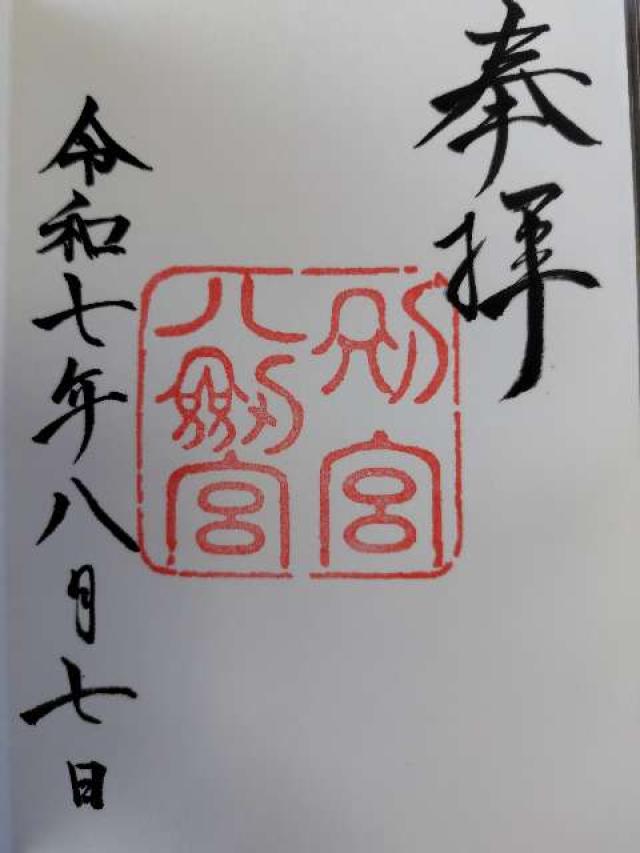 奉拝
別宮
八剱宮
令和七年八月七日